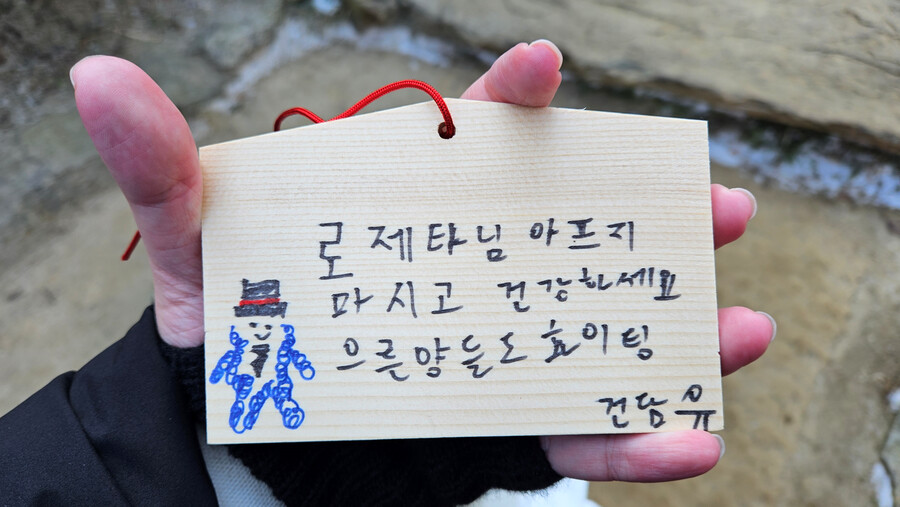 로제타님 아프지
마시고 건강하세요
으른양들도 홧이팅
건담 유